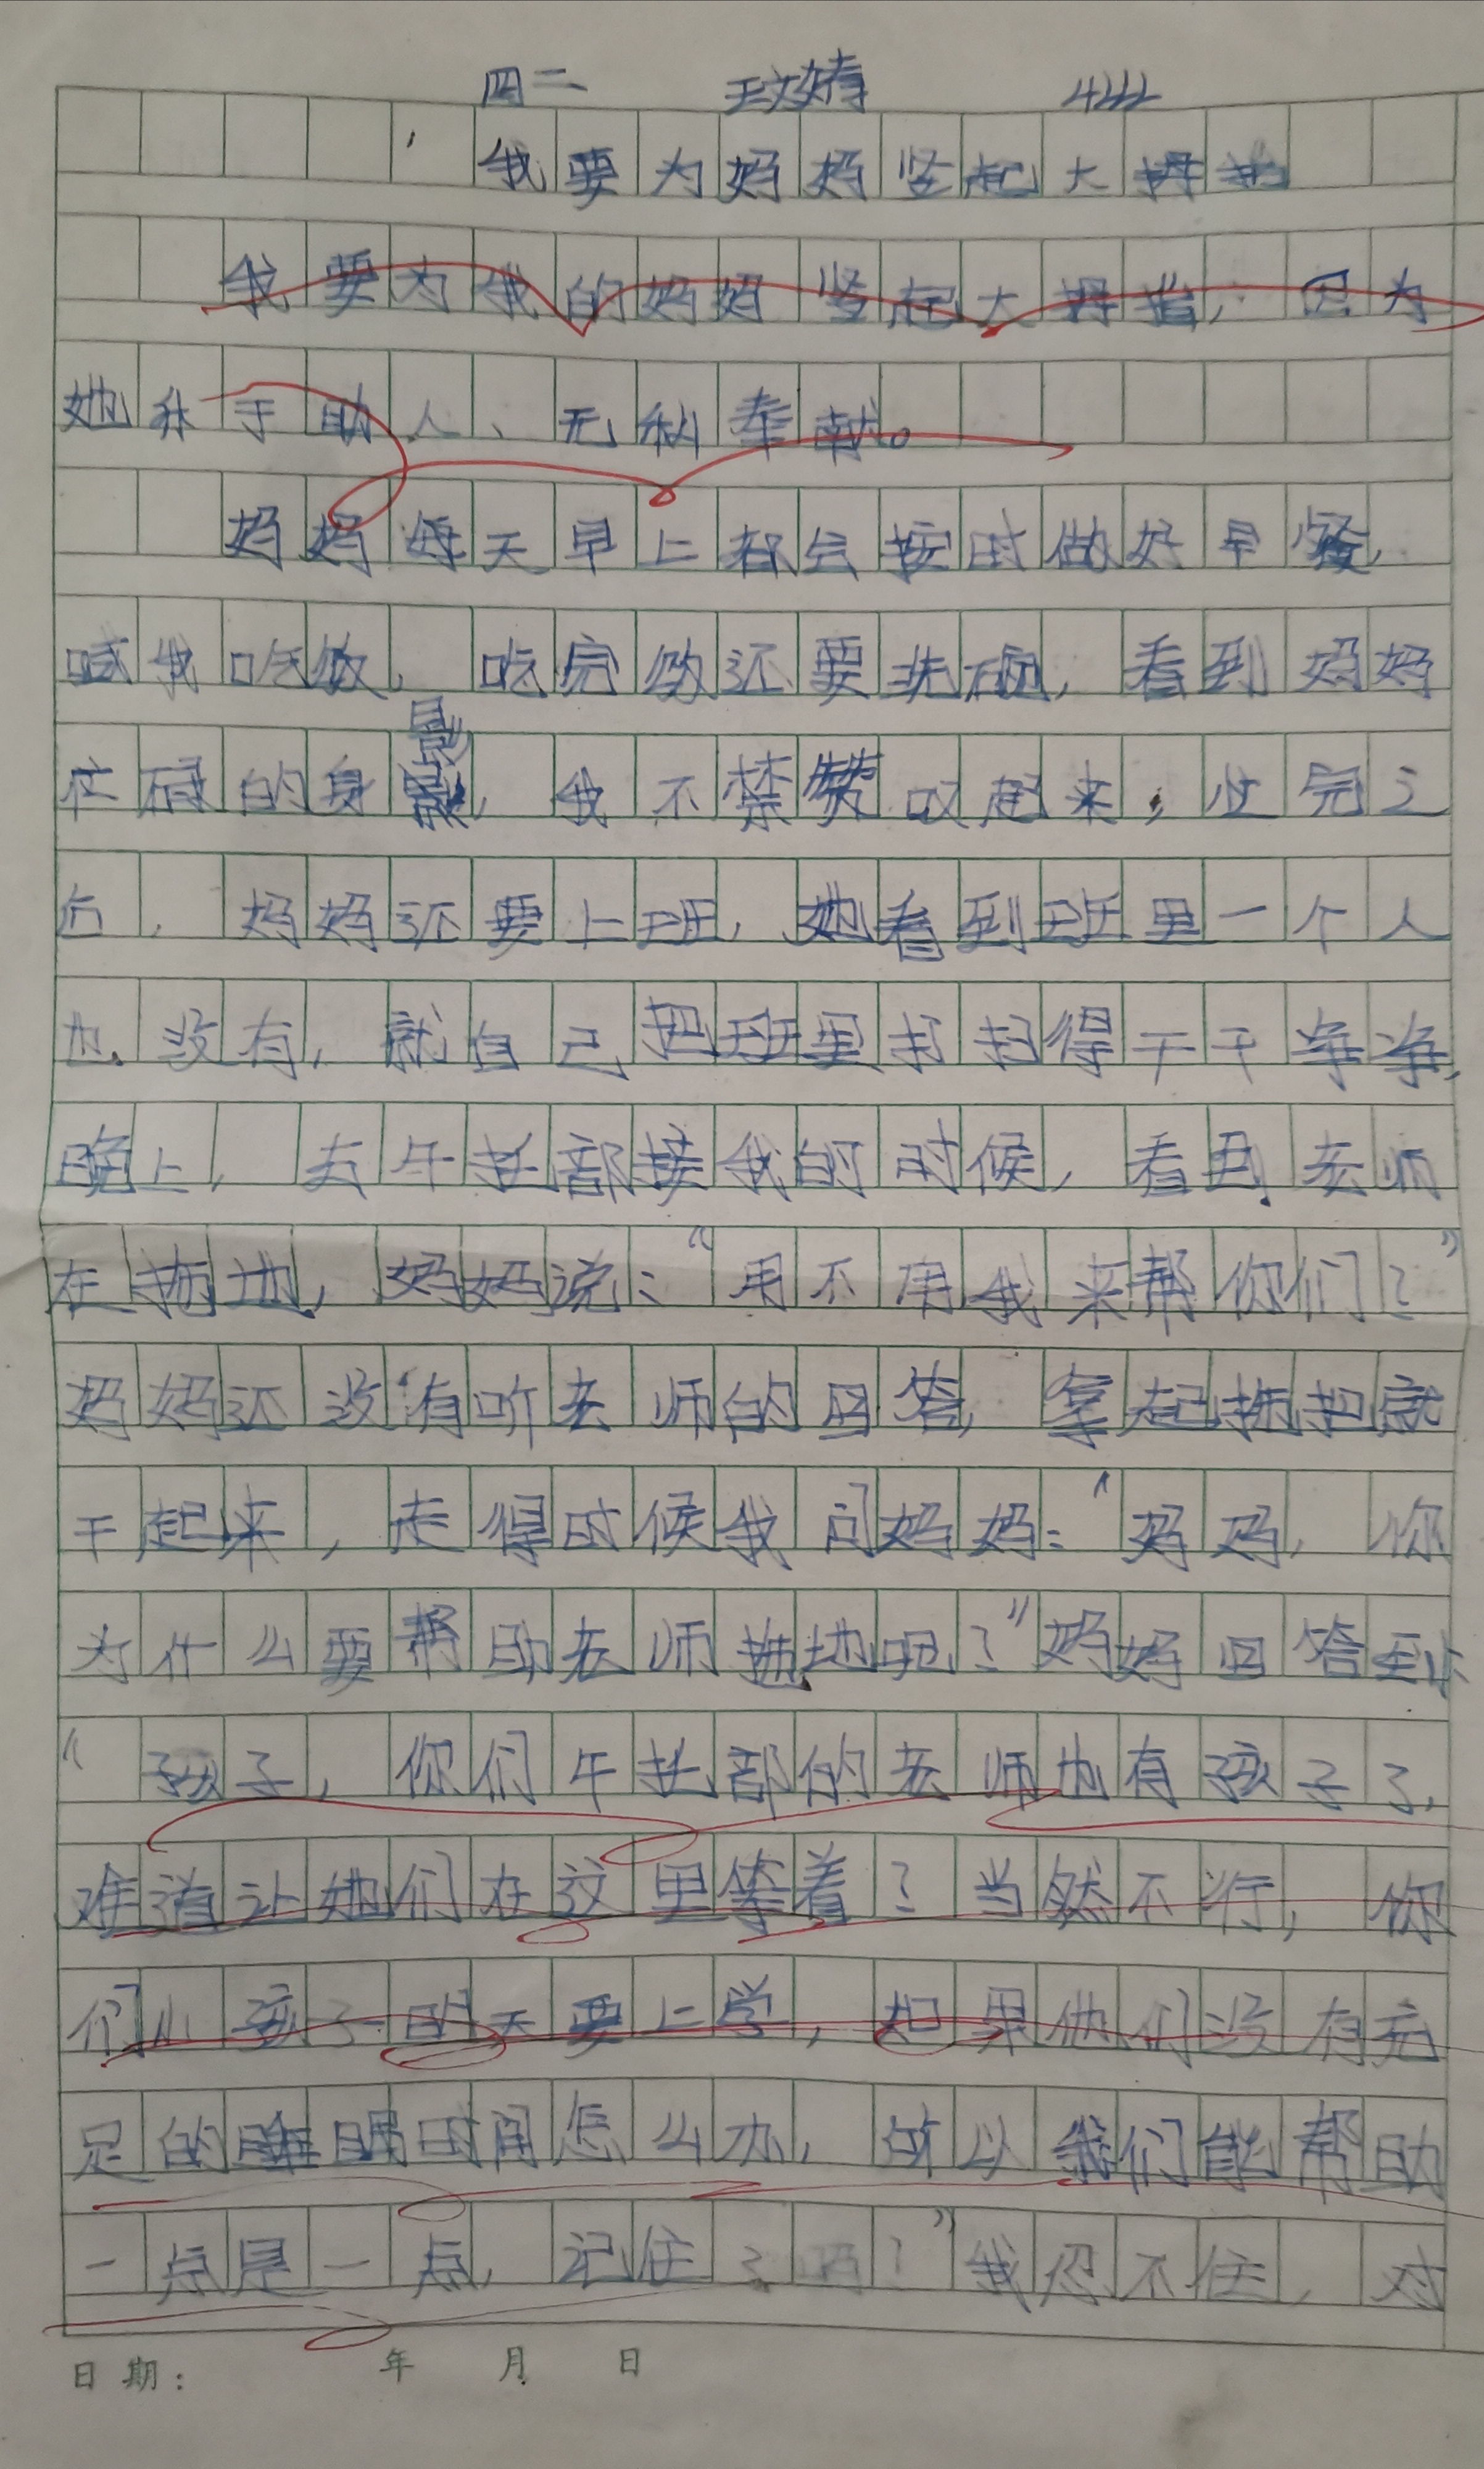 四二 444
我要为妈妈竖起大拇指
我要为我的妈妈竖起大拇指，因为
她乐于助人、无私奉献。
妈妈每天早上都会按时做好早餐，
喊我吃饭，吃完饭还要洗碗，看到妈妈
忙碌的身影，我不禁赞叹起来，忙完之
后，妈妈还要上班，她看到班里一个人
也没有，就自己把班里打扫得干干净净，
晚上，去午托部接我的时候，看到老师
在拖地，妈妈说：“用不用我来帮你们？”
妈妈还没有听老师的回答，拿起拖把就
干起来，走得时候我问妈妈：“妈妈，你
为什么要帮助老师拖地呢？”妈妈回答到：
“孩子，你们午托部的老师也有孩子了，
难道让她们在这里等着？当然不行，你
们小孩子明天要上学，如果他们没有充
足的睡眠时间怎么办，所以我们能帮助
一点是一点，记住了吗？”我忍不住，对
日期： 年 月 日